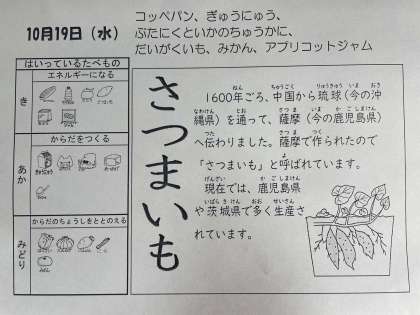 10月19日（水）
コッペパン、ぎゅうにゅう、
ぶたにくといかのちゅうかに、
だいがくいも、みかん、アプリコットジャム
はいっているたべもの
き
エネルギーになる
あか
からだをつくる
ぎゅうにゅう
みどり
からだのちょうしをととのえる
みかん
さつまいも
1600年ごろ、中国から琉球（今の沖
縄県）を通って、薩摩（今の鹿児島県）
へ伝わりました。薩摩で作られたので
「さつまいも」と呼ばれています。
現在では、鹿児島県
や茨城県で多く生産さ
れています。